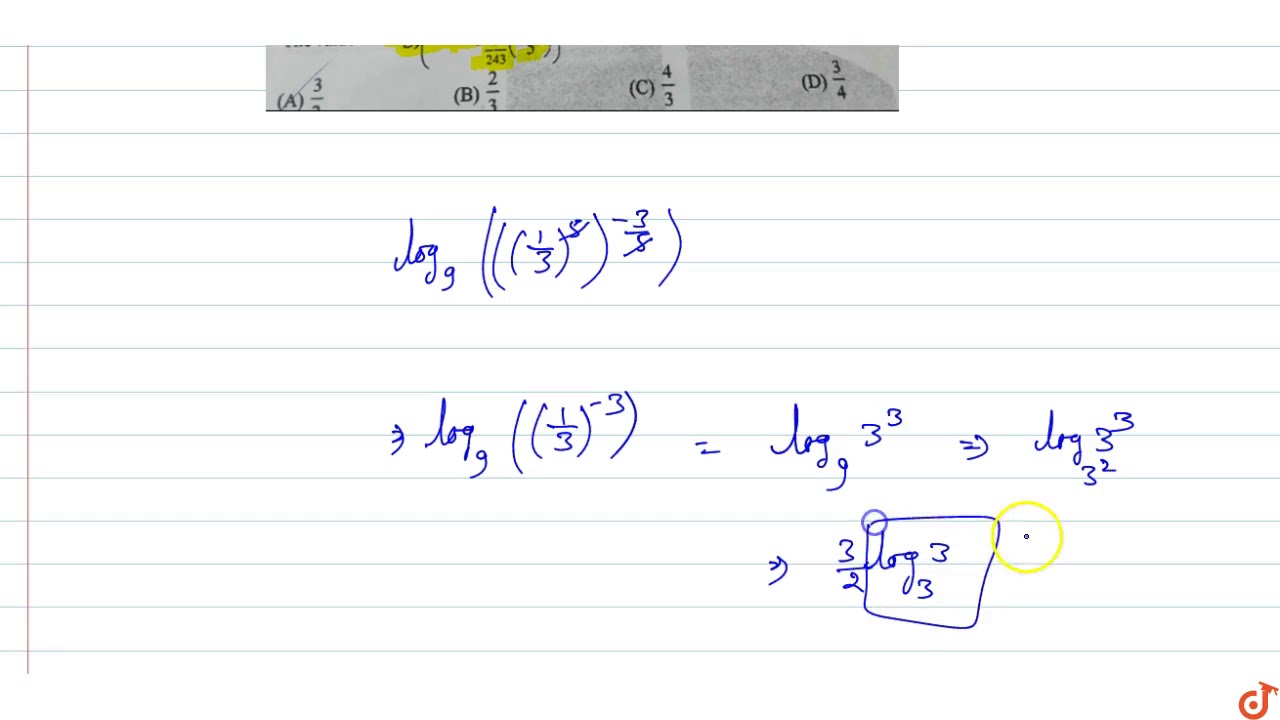 243
(A) 3 (B) 2/3 (C) 4/3 (D) 3/4
log₉ (((1/3)⁵)^(-3/5))
⇒ log₉ ((1/3)⁻³) = log₉ 3³ ⇒ log_(3²) 3³
⇒ 3/2 log₃ 3